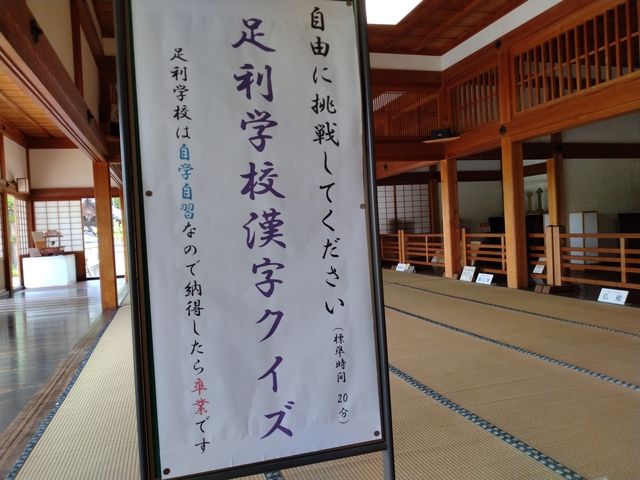 自由に挑戦してください（標準時間 20分）
足利学校漢字クイズ
足利学校は自学自習なので納得したら卒業です
仏殿